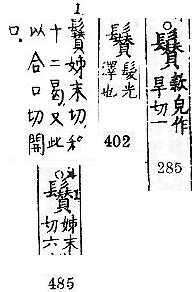 1
䰖姊末切,和
十二曷,又此
以合口切開
口。
䰖髮光
澤也
402
○䰖皃作
旱切一
285
䰖姊末
切六
485